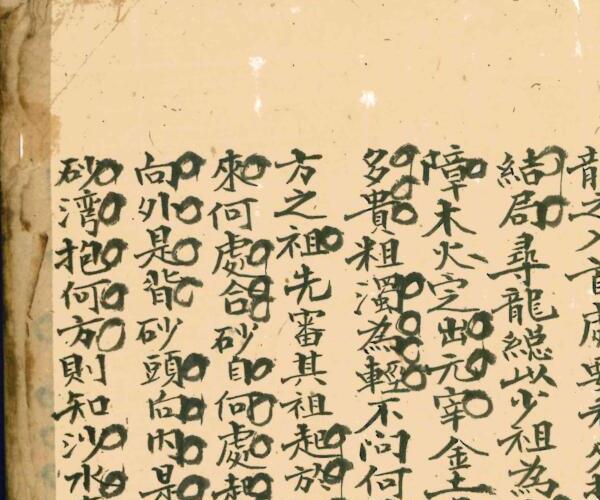 龍之入首處要
結局尋龍総以少祖為
障木火定出元宰金土
多貴粗濁為輕不问何
方之祖先審其祖起於
來何處合砂自何處起
向外是背砂頭向内是
砂湾抱何方則知沙水